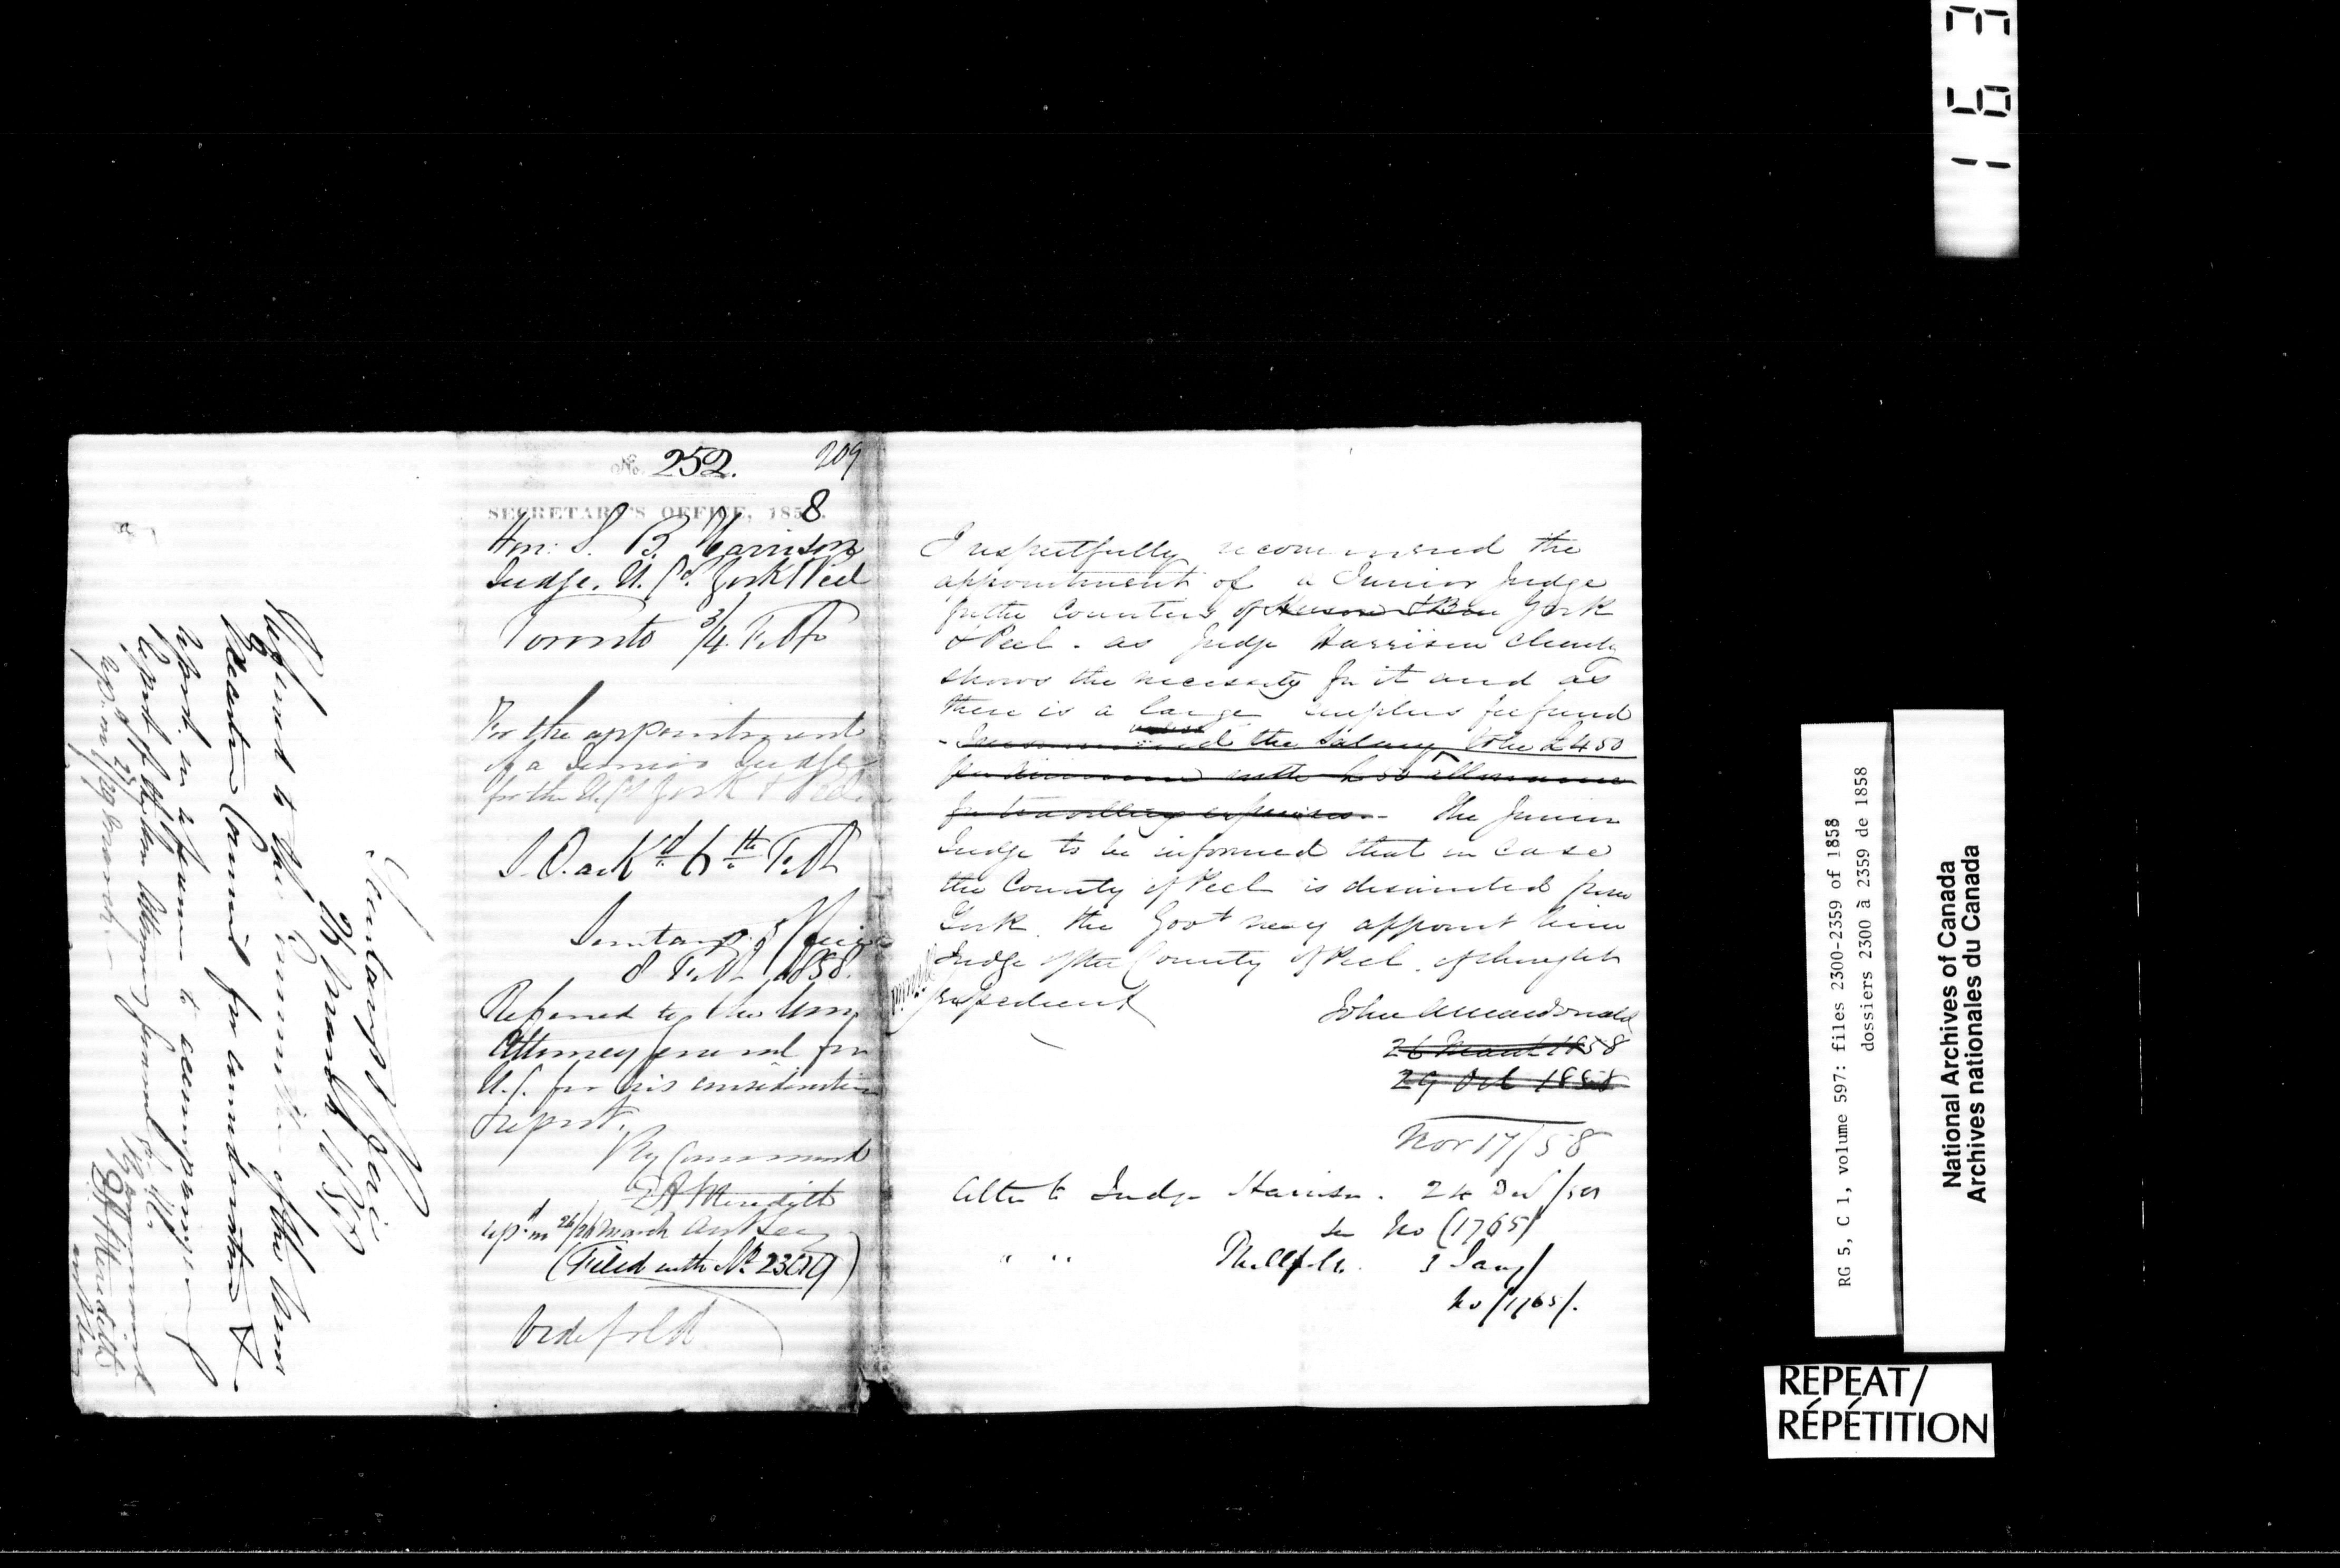 No. 252.
209
SECRETARY'S OFFICE, 1858.
Hon: S. B. Harrison
Judge, U. Cs. York & Peel
Toronto 3/4 Feb
For the appointment
of a Junior Judge
for the U. Cs York & Peel
Ackd 6th Feb
Secretary's Office
8 Feb 1858.
Referred to the Hon
Attorney General for
U.C. for his consideration
& report.
By Command
E A Meredith
26 March
(Filed with No 2309)
Secretary's Office
26 March 1858
Referred to the Committee of the Honr
Executive Council for consideration &
report, in reference to accompanying
report of the Hon Attorney General U.C.
By Command
E A Meredith
I respectfully recommend the
appointment of a Junior Judge
for the Counties of Huron & Bruce York
& Peel. as Judge Harrison clearly
shows the necessity for it and as
there is a large surplus fee fund
- I recommend the Salary to be £450
per annum with £50 allowance
for travelling expenses. - The Junior
Judge to be informed that in case
the County of Peel is disunited from
York. the Govt may appoint him
Judge of the County of Peel. if thought
expedient
John A Macdonald
26 March 1858
29 Oct 1858
Nov 17/58
Letter to Judge Harrison. 24 Decr/58
see No (1765)
" " 3 Jany/
No /1765/.
163
RG 5, C 1, volume 597: files 2300-2359 of 1858
dossiers 2300 à 2359 de 1858
National Archives of Canada
Archives nationales du Canada
REPEAT/
RÉPÉTITION